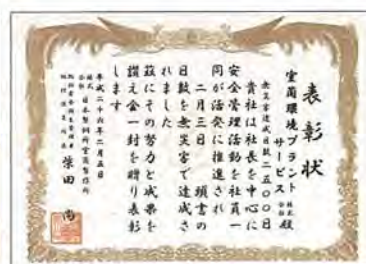 表彰状
室蘭環境プラント
サービス 株式会社 殿
無災害達成日数二五〇〇日
貴社は社長を中心に
安全管理活動を社員一
同が活発に推進され
二月三日 頭書の
日数を無災害で達成さ
れました
茲にその努力と成果を
讃え金一封を贈り表彰
します
平成二十六年二月五日
株式会社 日本製鋼所室蘭製作所
柴田 尚